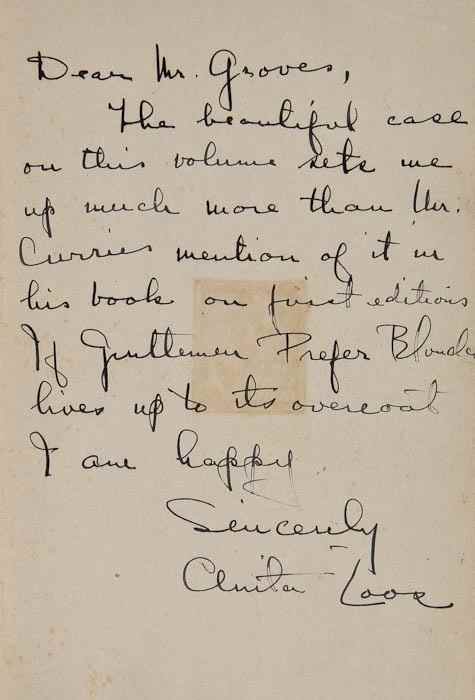 Dear Mr. Groves,
The beautiful case
on this volume sets me
up much more than Mr.
Curries mention of it in
his book on first editions
If Gentlemen Prefer Blondes
lives up to its overcoat
I am happy
Sincerely
Anita Loos